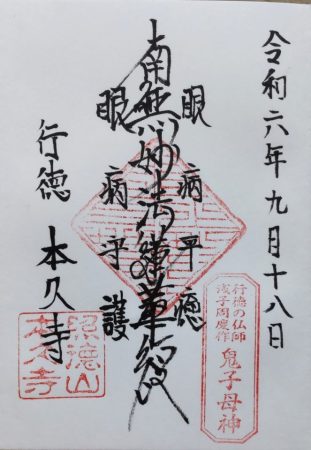 令和六年九月十八日
眼病平癒
南無妙法蓮華経
眼病守護
行徳 本久寺
行徳の仏師
浅子周慶作
鬼子母神
照徳山
本久寺